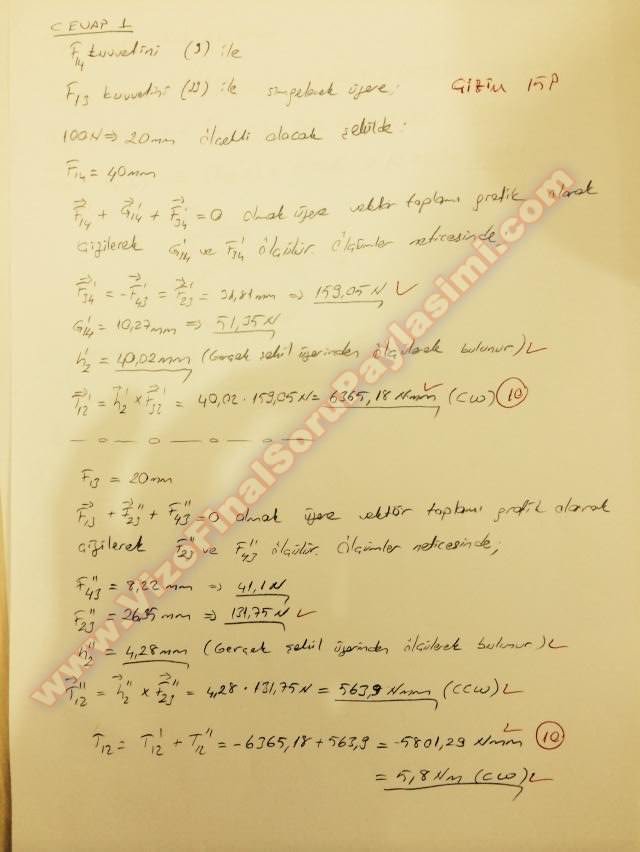 CEVAP 1
F14 kuvvetini (') ile
F13 kuvvetini ('') ile simgelemek üzere; Çizim 15P
100N => 20mm ölçekli olacak şekilde:
F14 = 40mm
F14 + G'14 + F'34 = 0 olmak üzere vektör toplamı grafik olarak
çizilerek G'14 ve F'34 ölçülür. Ölçümler neticesinde,
F'34 = -F'43 = F'23 = 31,81mm => 159,05 N ✓
G'14 = 10,27mm => 51,35N
h'2 = 40,02mm (Gerçek şekil üzerinden ölçülerek bulunur) ✓
T'12 = h'2 x F'32 = 40,02 · 159,05N = 6365,18 Nmm (CW) 10
F13 = 20mm
F13 + F''23 + F''43 = 0 olmak üzere vektör toplamı grafik olarak
çizilerek F''23 ve F''43 ölçülür. Ölçümler neticesinde;
F''43 = 8,22 mm => 41,1N
F''23 = 26,35mm => 131,75N ✓
h''2 = 4,28mm (Gerçek şekil üzerinden ölçülerek bulunur) ✓
T''12 = h''2 x F''23 = 4,28 · 131,75N = 563,9 Nmm (CCW) ✓
T12 = T'12 + T''12 = -6365,18 + 563,9 = -5801,29 Nmm 10
= 5,8 Nm (CW) ✓
www.VizeFinalSoruPaylasimi.com